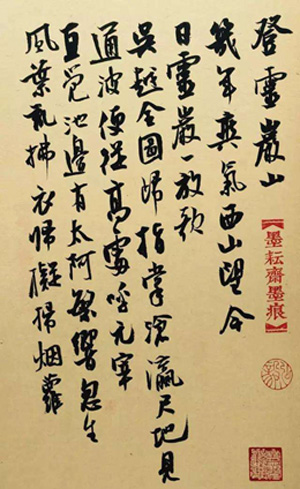 登靈巖山
幾年爽氣西山望今
日靈巖一放歌
吳越全圖歸指掌滄瀛尺地見
通波便從高處呼元宰
直覺池邊有太阿繁響忽生
風葉亂拂衣歸擬掃烟蘿
【墨耘齋墨痕】